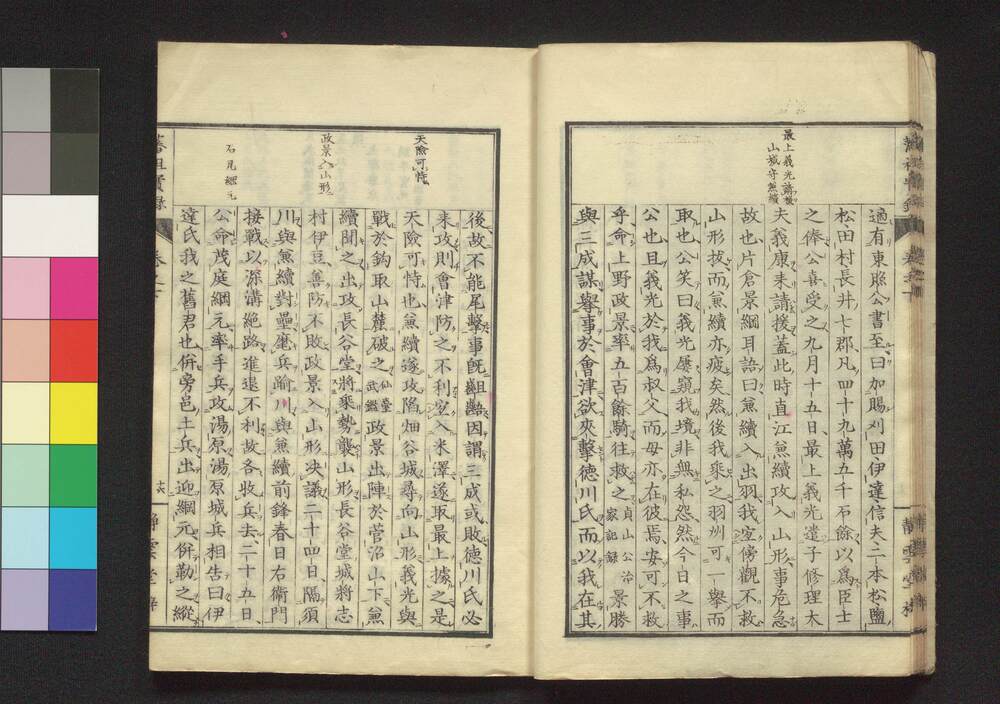 最上義光請救
山城守兼續
適有東照公書至曰加賜刈田伊達信夫二本松鹽
松田村長井七郡凡四十九萬五千石餘以爲臣士
之俸公喜受之九月十五日最上義光遣子修理大
夫義康来請援蓋此時直江兼續攻入山形事危急
故也片倉景綱耳語曰兼續入出羽我宜傍觀不救
山形拔而兼續亦疲矣然後我乘之羽州可一舉而
取也公笑曰義光屡窺我境非無私怨然今日之事
公也且義光於我爲叔父而母亦在彼焉安可不救
乎命上野政景率五百餘騎往救之貞山公治家記録景勝
與三成謀舉事於會津欲夾擊德川氏而以我在其
天險可恃
政景入山形
石見綱元
後故不能尾擊事旣齟齬因謂三成或敗德川氏必
来攻則會津防之不利宜入米澤遂取最上據之是
天險可恃也兼續遂攻陷畑谷城尋向山形義光與
戰於鈎取山麓破之仙臺武鑑政景出陣於菅沼山下兼
續聞之出攻長谷堂將乘勢襲山形長谷堂城將志
村伊豆善防不敗政景入山形决議二十四日隔須
川與兼續對壘麾兵踰川與兼續前鋒春日右衛門
接戰以深溝絶路進退不利故各收兵去二十五日
公命茂庭綱元率手兵攻湯原湯原城兵相告曰伊
達氏我之舊君也併旁邑土兵出迎綱元併勒之縱
十六
静雲堂